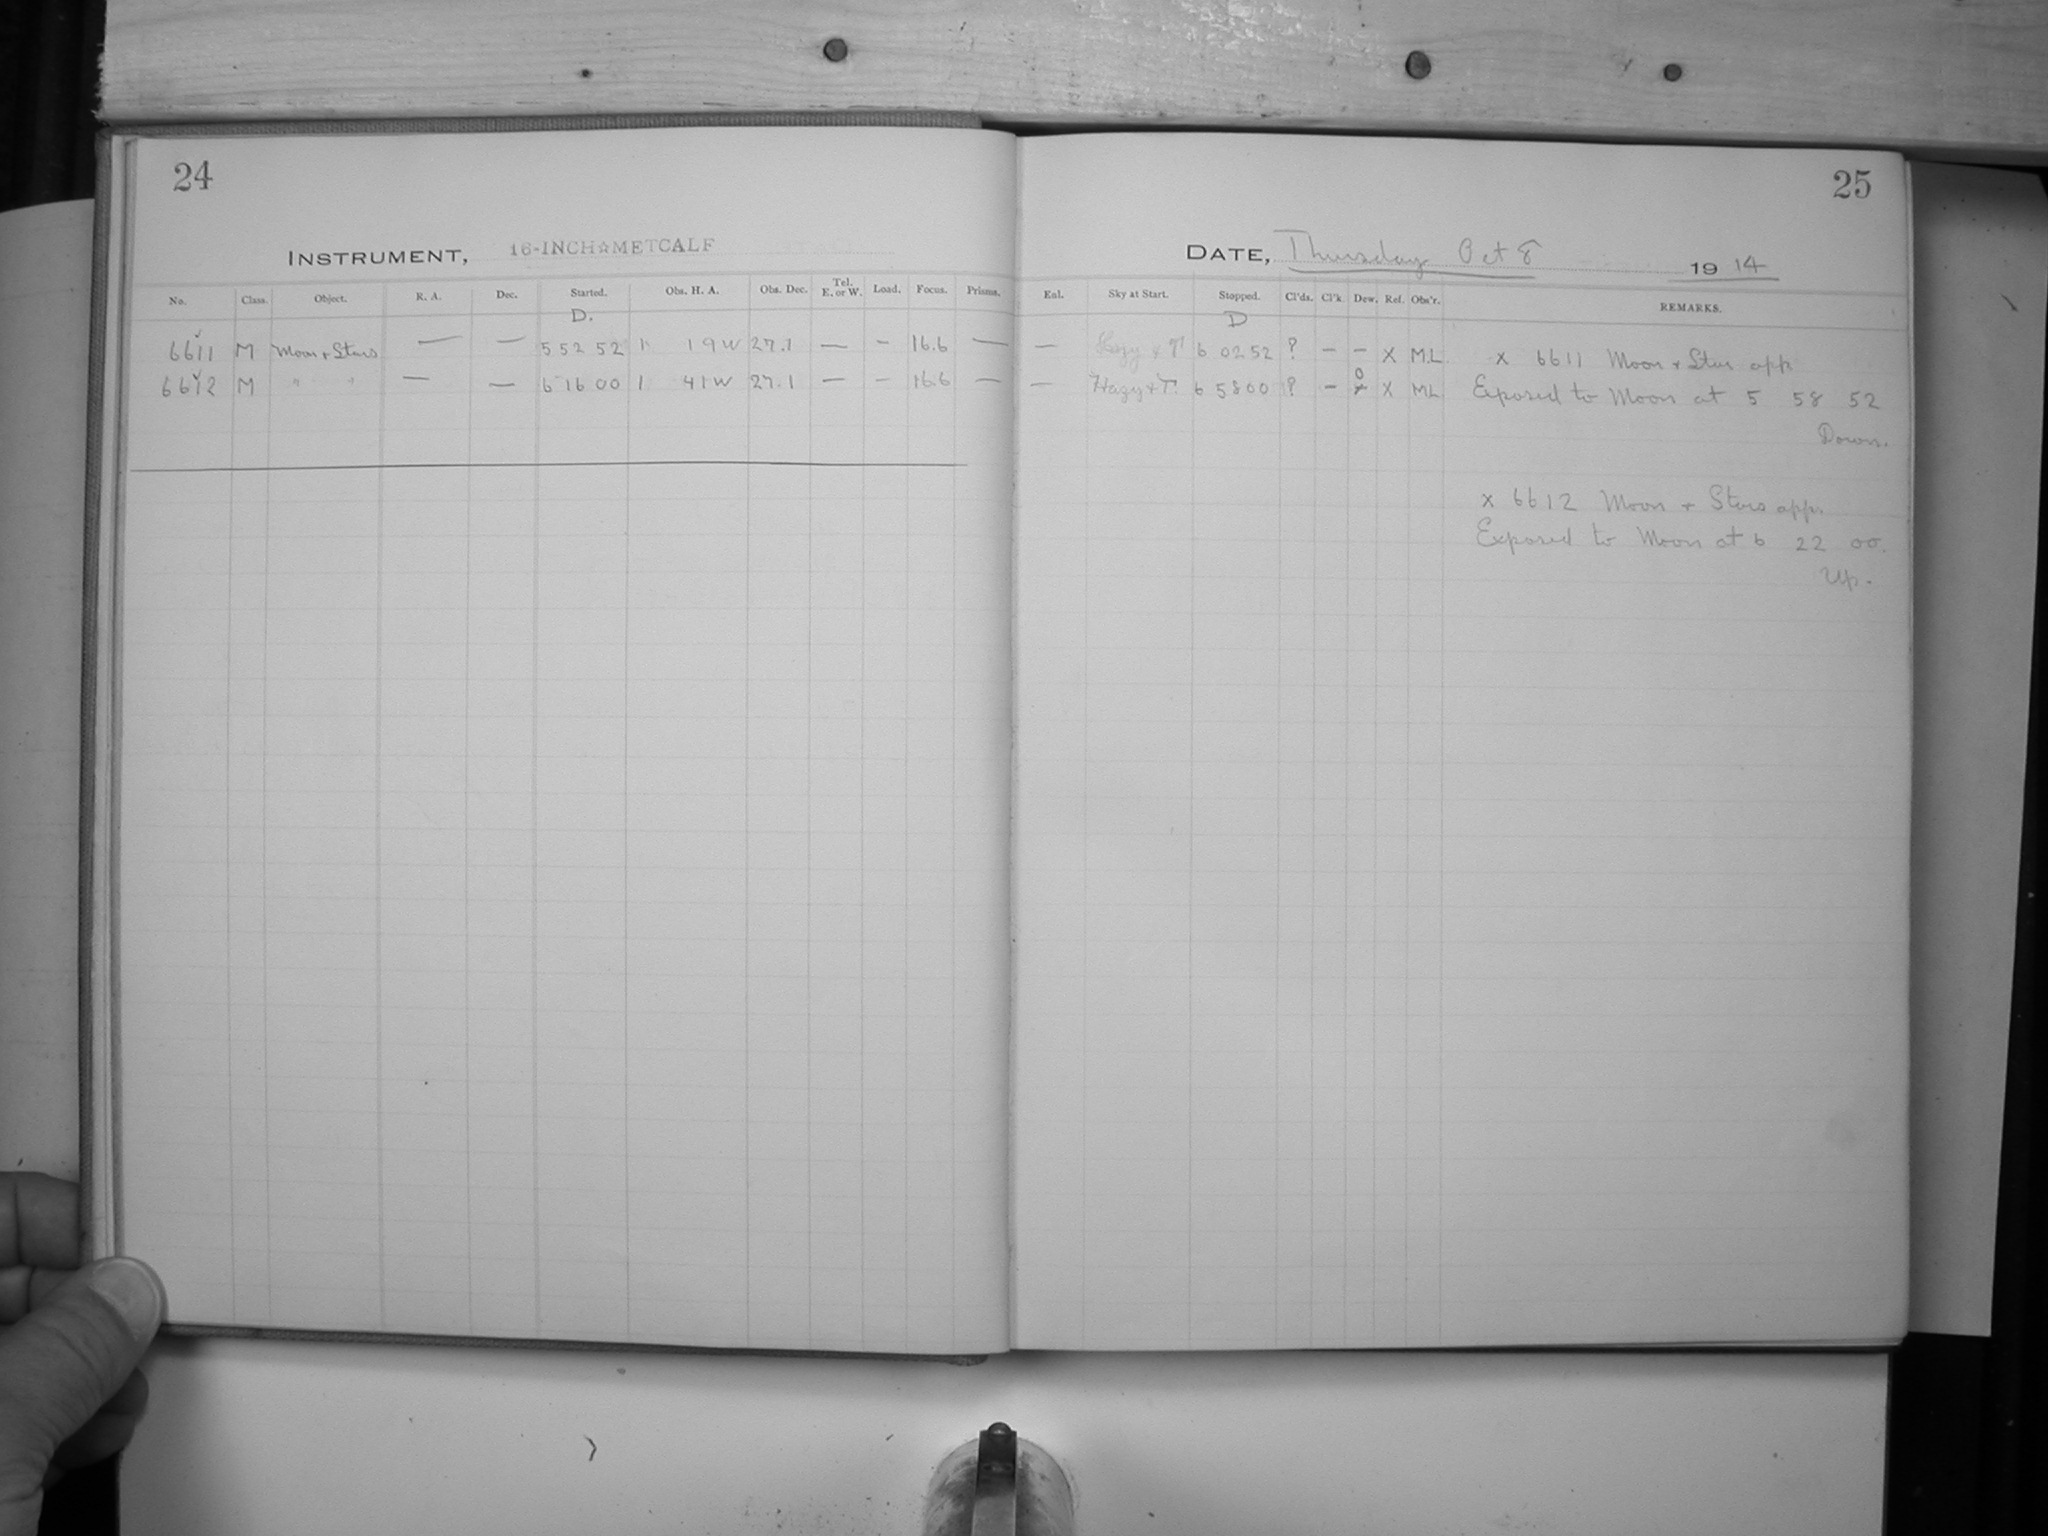 24
25
INSTRUMENT, 16-INCH☆METCALF
DATE, Thursday Oct 8 1914
No. Class. Object. R. A. Dec. Started. Obs. H. A. Obs. Dec. Tel. E. or W. Load. Focus. Prisms. Enl. Sky at Start. Stopped. Cl'ds. Cl'k. Dew. Ref. Obs'r. REMARKS.
D. D
6611 M Moon + Stars — — 5 52 52 1 19 W 27.1 — - 16.6 — — Hazy + T 6 02 52 ? - - X M.L. x 6611 Moon + Stars app
6612 M " " — — 6 16 00 1 41 W 27.1 — - 16.6 — — Hazy + T. 6 58 00 ? - 0 X M.L. Exposed to Moon at 5 58 52
Down.
x 6612 Moon + Stars app.
Exposed to Moon at 6 22 00.
Up.